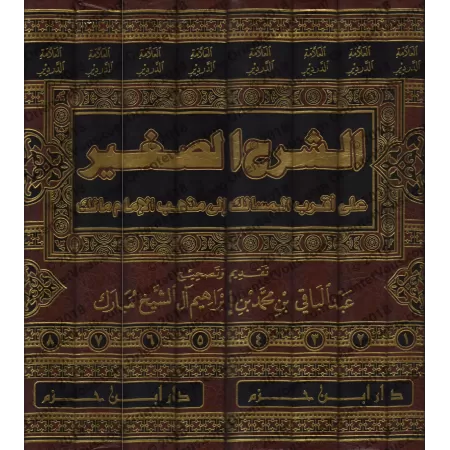 العلامة العلامة العلامة العلامة العلامة العلامة العلامة العلامة
الدردير الدردير الدردير الدردير الدردير الدردير الدردير الدردير
الشرح الصغير
على أقرب المسالك إلى مذهب الإمام مالك
تقديم وتصحيح
عبد الباقي بن محمد بن إبراهيم آل الشيخ مبارك
١ ٢ ٣ ٤ ٥ ٦ ٧ ٨
دار ابن حزم دار ابن حزم